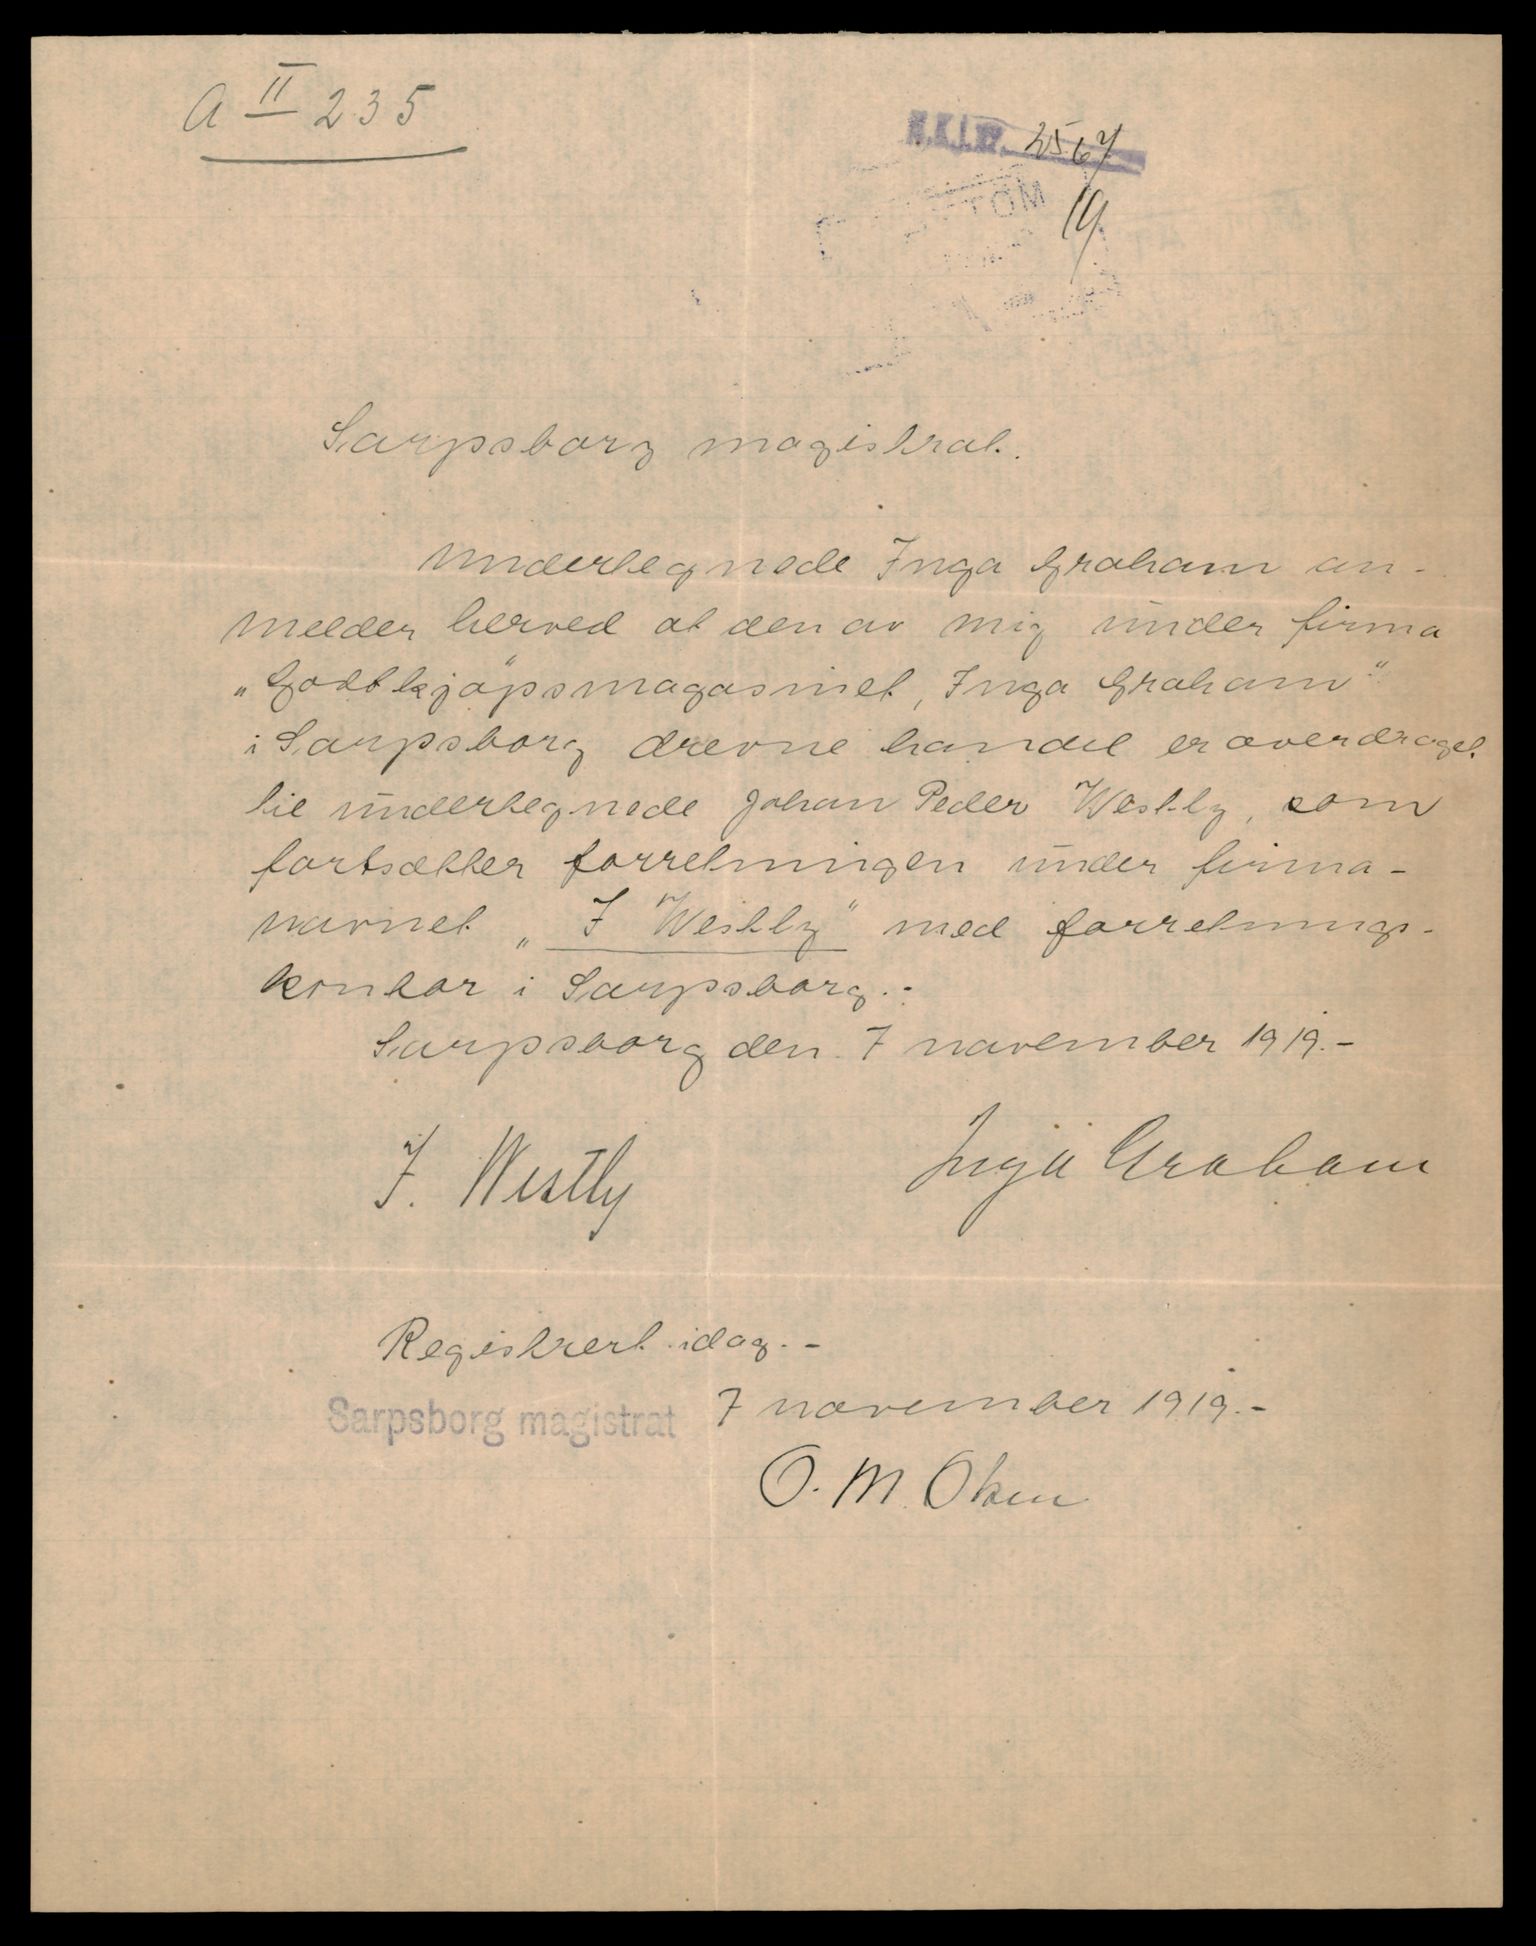 A II 235
2567
19
Sarpsborg magistrat.
Undertegnede Inga Graham an-
melder herved at den av mig under firma
„Godtkjøpsmagasinet, Inga Graham"
i Sarpsborg drevne handel er overdraget
til undertegnede Johan Peder Westly, som
fortsætter forretningen under firma-
navnet „J Westly" med forretnings-
kontor i Sarpsborg.-
Sarpsborg den 7 november 1919.-
J. Westly
Inga Graham
Registrert idag.-
Sarpsborg magistrat 7 november 1919.-
O. M.